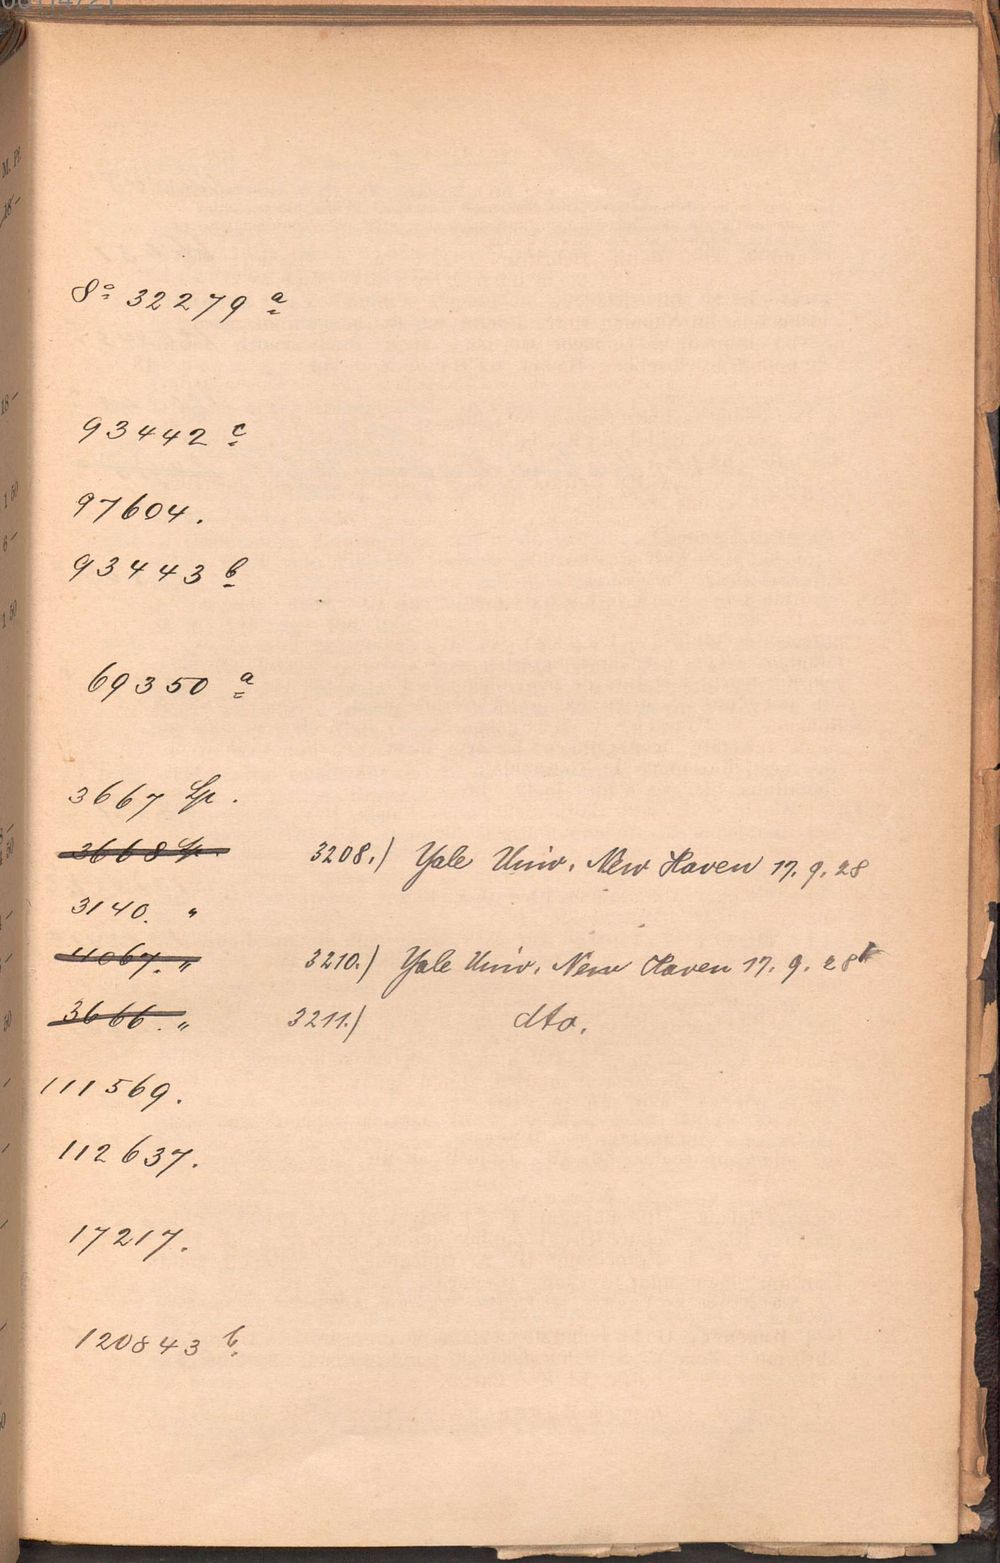 8° 32279 a
93442 c
97604.
93443 b
69350 a
3667 Lp.
3668 Lp. 3208.) Yale Univ. New Haven 17. 9. 28
3140. "
4067. " 3210.) Yale Univ. New Haven 17. 9. 28
3666. " 3211.) dto.
111569.
112637.
17217.
120843 b.
M. Pf.
18 –
18 –
1 50
6 –
1 50